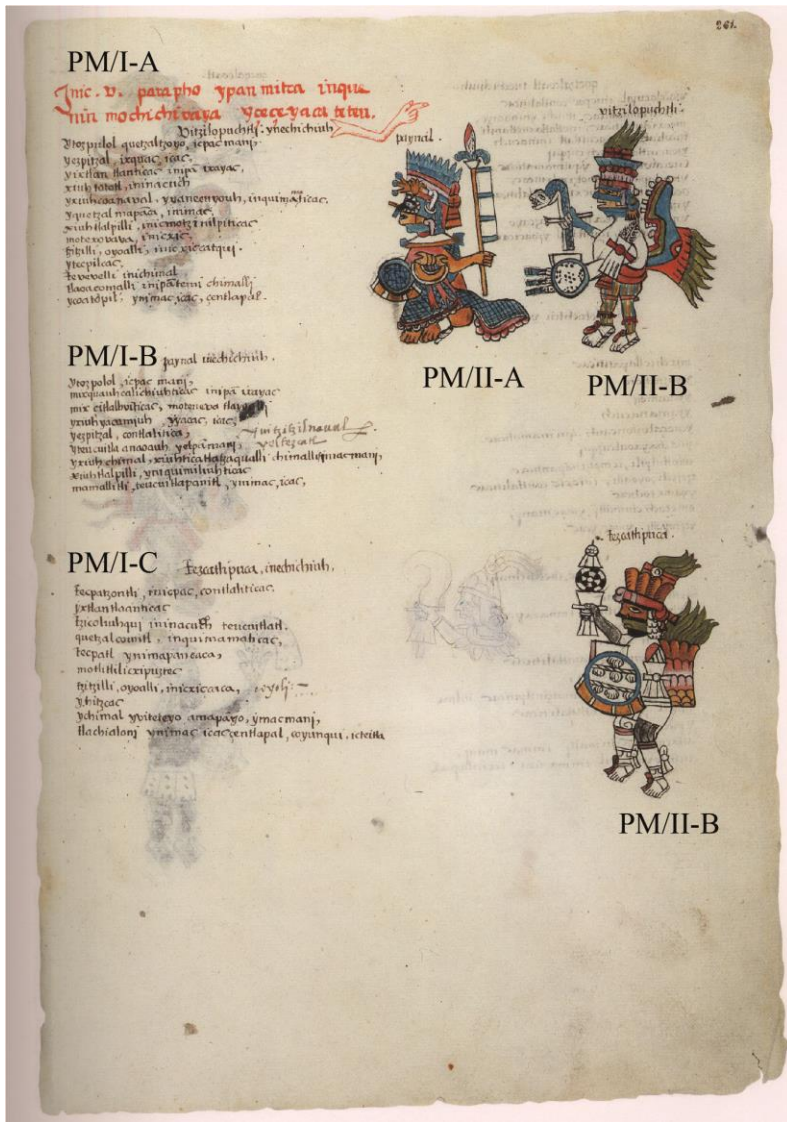 261.
PM/I-A
Inic .v. parapho ypan mitoa inque
nin mochichivaya yceçeyaca teteu.
Vitzilopuchtli. ynechichiuh
ytozpulol quetzaltzoyo, icpac manj
yezpitzal, ixquac, icac,
yixtlan tlanticac inipã ixayac,
xiuh tototl, ininacuch
yxiuhcoanaval, yyanecuyouh, inquimamaticac,
yquetzal mapãca, inimac,
xiuhtlalpilli, inic motzinilpiticac
motexovava, inicxic,
tzitzilli, oyoalli, inicxic catqui.
ytecpilcac.
tevevelli inichimal
tlaoaçomalli inipã temi chimallj
ycoatopil: ynimac, icac, centlapal.
paynal.
vitzilopuchtli.
PM/II-A
PM/II-B
PM/I-B
paynal inechichiuh.
ytozpolol, icpac manj,
mixquauhcalichiuhticac inipã ixayac
mix citlalhviticac, moteneva tlayoalli
yxiuh yacamjuh yyacac, icac
yezpitzal, contlaliticac,
yhuitzitzilnaval
yteucuitla anaoauh yelpã manj,
yxiuh chimal, xiuhtica tlatzaqualli chimalli ymac manj,
xiuhtlalpilli, ynic quimiliuhticac
mamallitli, teucuitlapanitl, ynimac, icac,
PM/I-C
tezcatlipuca, inechichiuh,
tecpatzontli, inicpac, contlaliticac,
yxtlan tlaanticac
tzicoliuhqui ininacuch teucuitlatl.
quetzalcomitl, inquimamaticac,
tecpatl ynimapaneaca,
motliltilicxipuztec
tzitzilli, oyoalli, inicxic caca,
yhitzcac
ychimal yviteteyo amapãyo, ymac manj,
tlachialonj ynimac icac centlapal, coyunqui, icteitta
tezcatlipuca.
PM/II-B